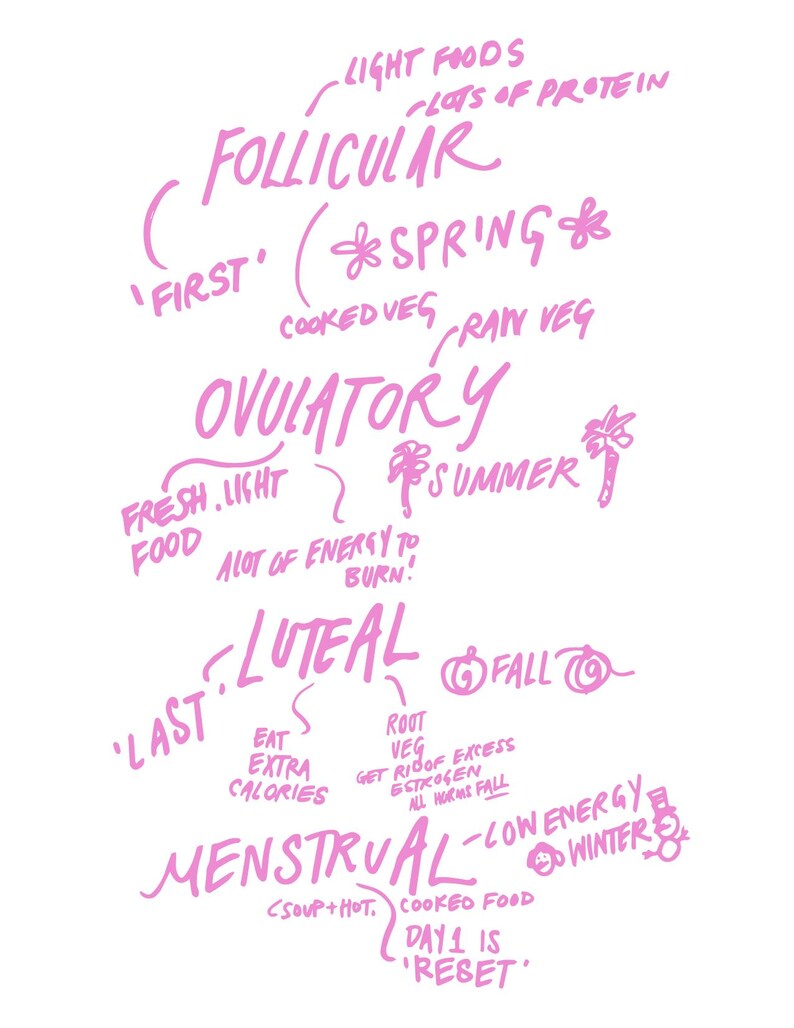 LIGHT FOODS
LOTS OF PROTEIN
FOLLICULAR
'FIRST'
SPRING
COOKED VEG
RAW VEG
OVULATORY
SUMMER
FRESH. LIGHT
FOOD
A LOT OF ENERGY TO
BURN!
LUTEAL
FALL
'LAST'
EAT
EXTRA
CALORIES
ROOT
VEG
GET RID OF EXCESS
ESTROGEN
ALL HORMS FALL
MENSTRUAL
LOW ENERGY
WINTER
SOUP + HOT. COOKED FOOD
DAY 1 IS
'RESET'